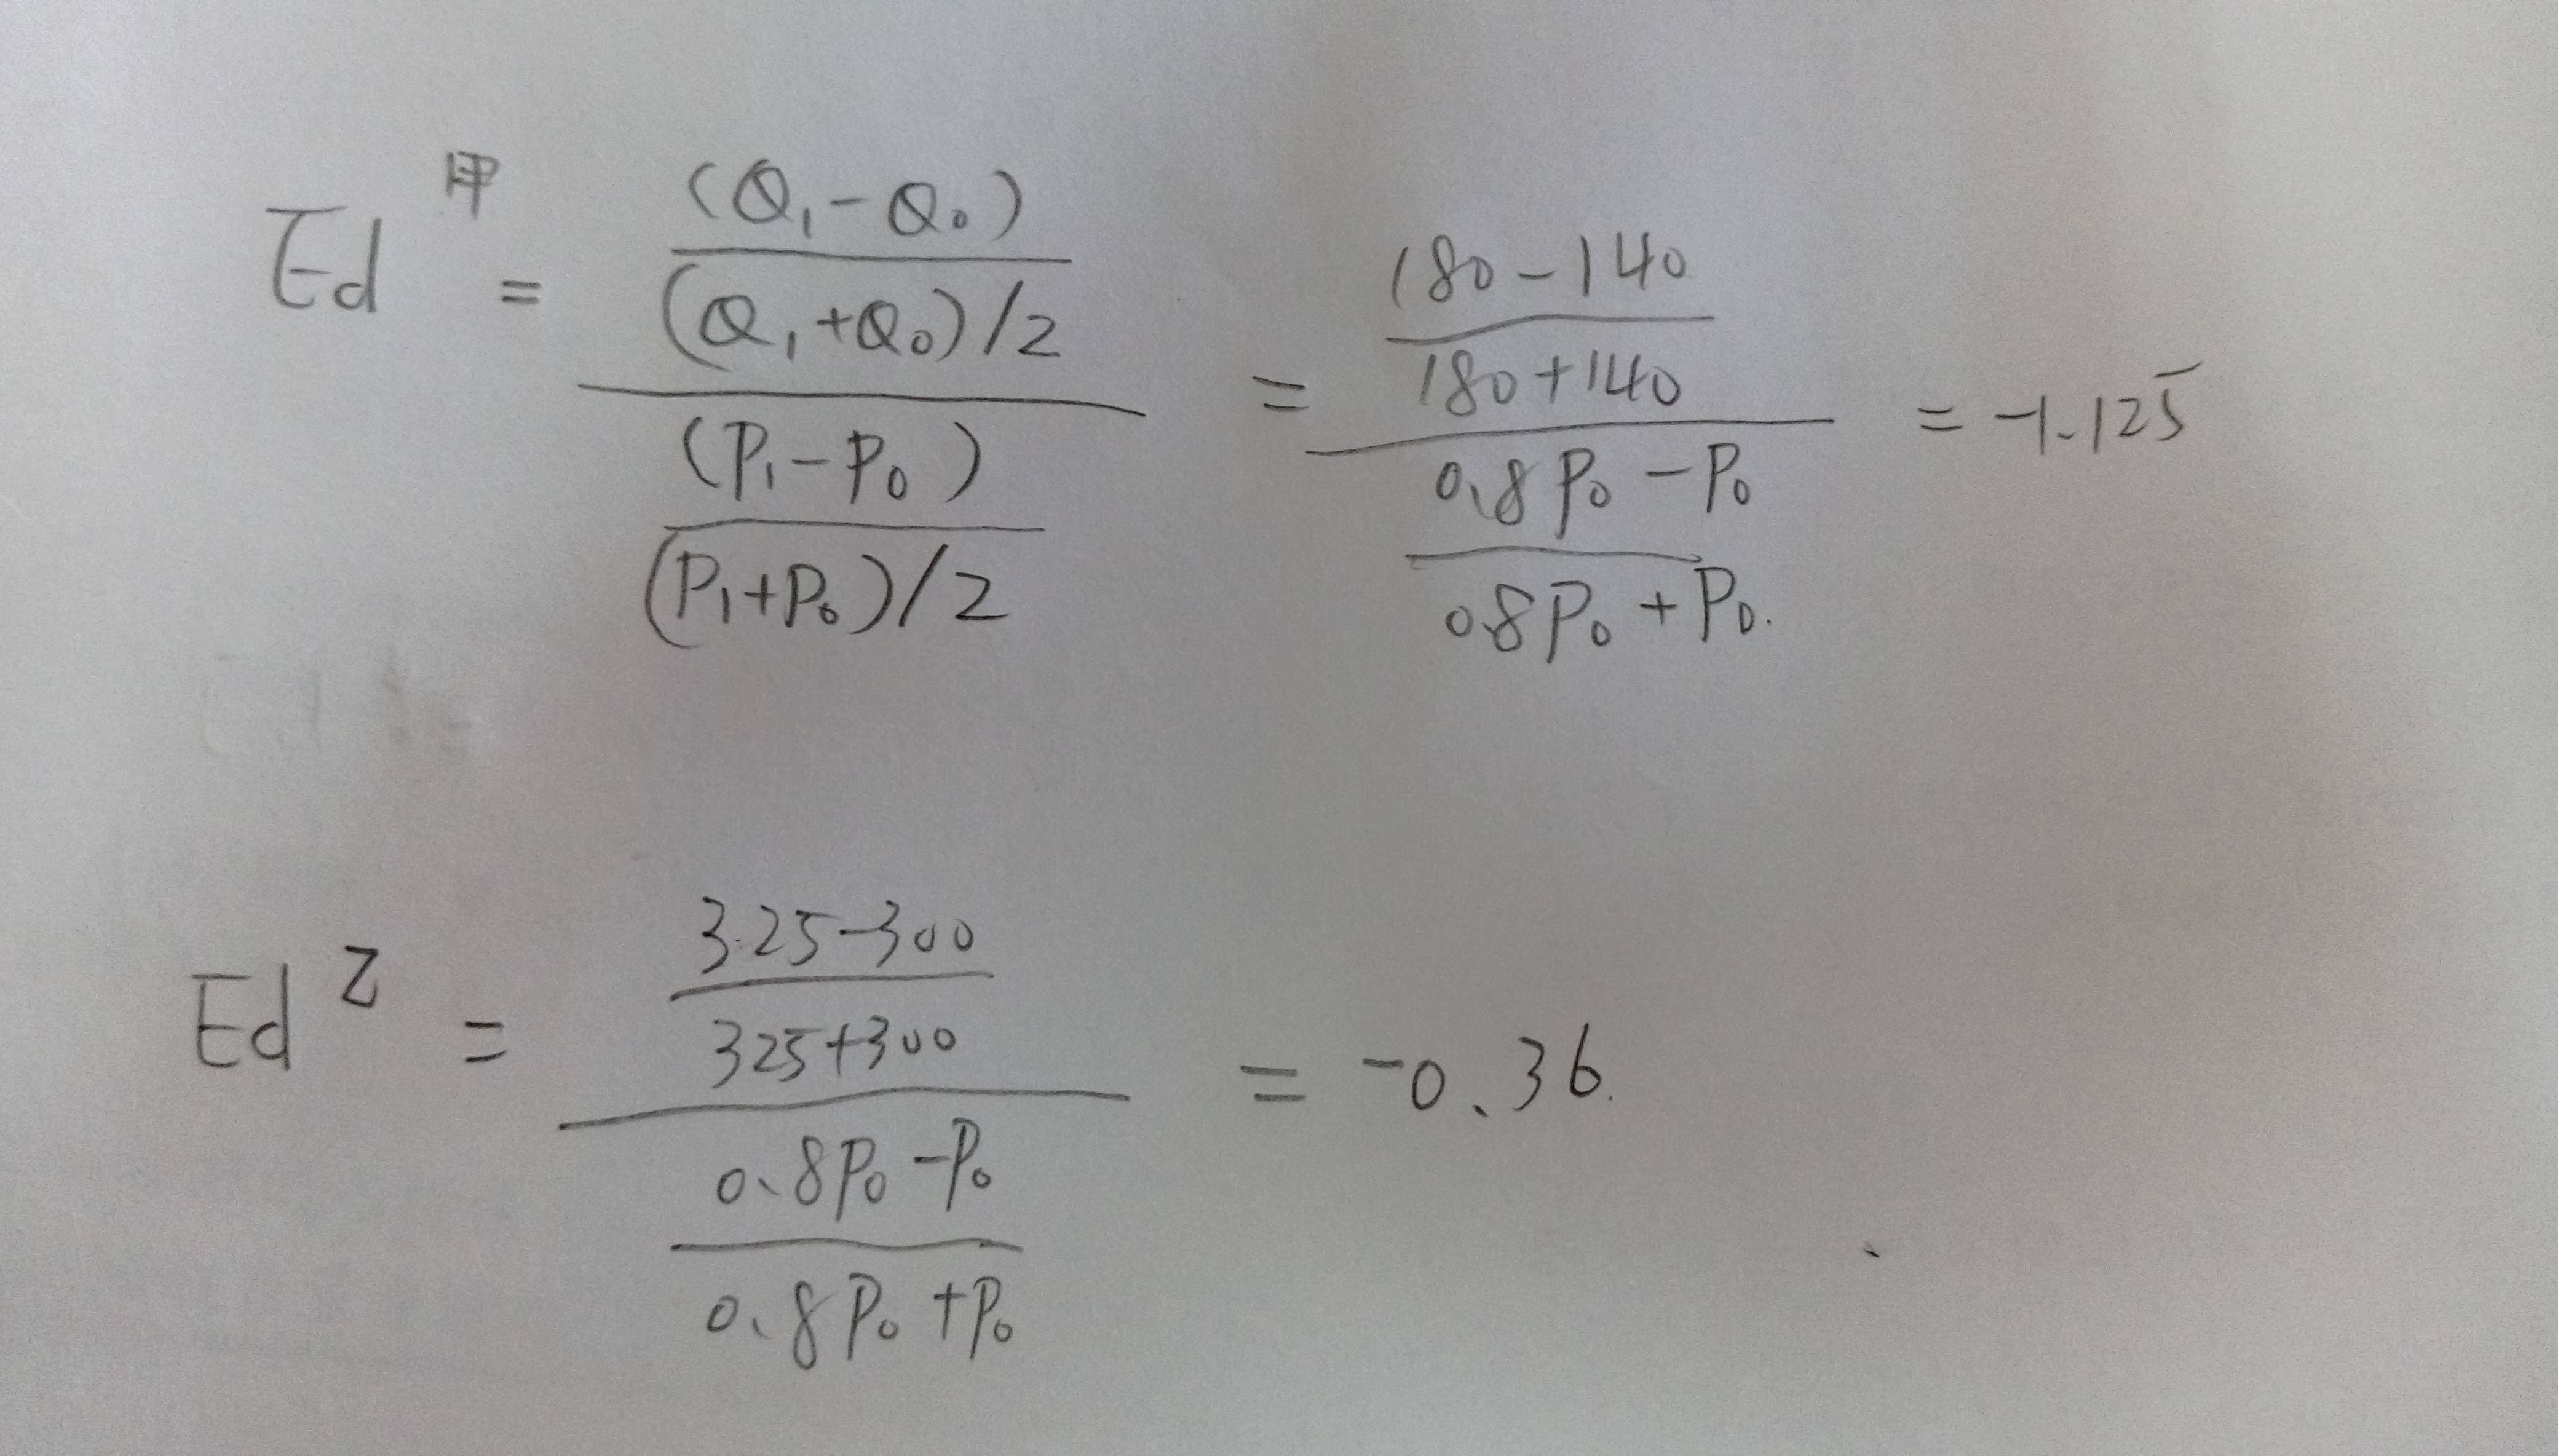 Ed甲 = ((Q₁-Q₀)/((Q₁+Q₀)/2))/((P₁-P₀)/((P₁+P₀)/2)) = ((180-140)/(180+140))/((0.8P₀-P₀)/(0.8P₀+P₀.)) = -1.125
Ed乙 = ((325-300)/(325+300))/((0.8P₀-P₀)/(0.8P₀+P₀)) = -0.36.